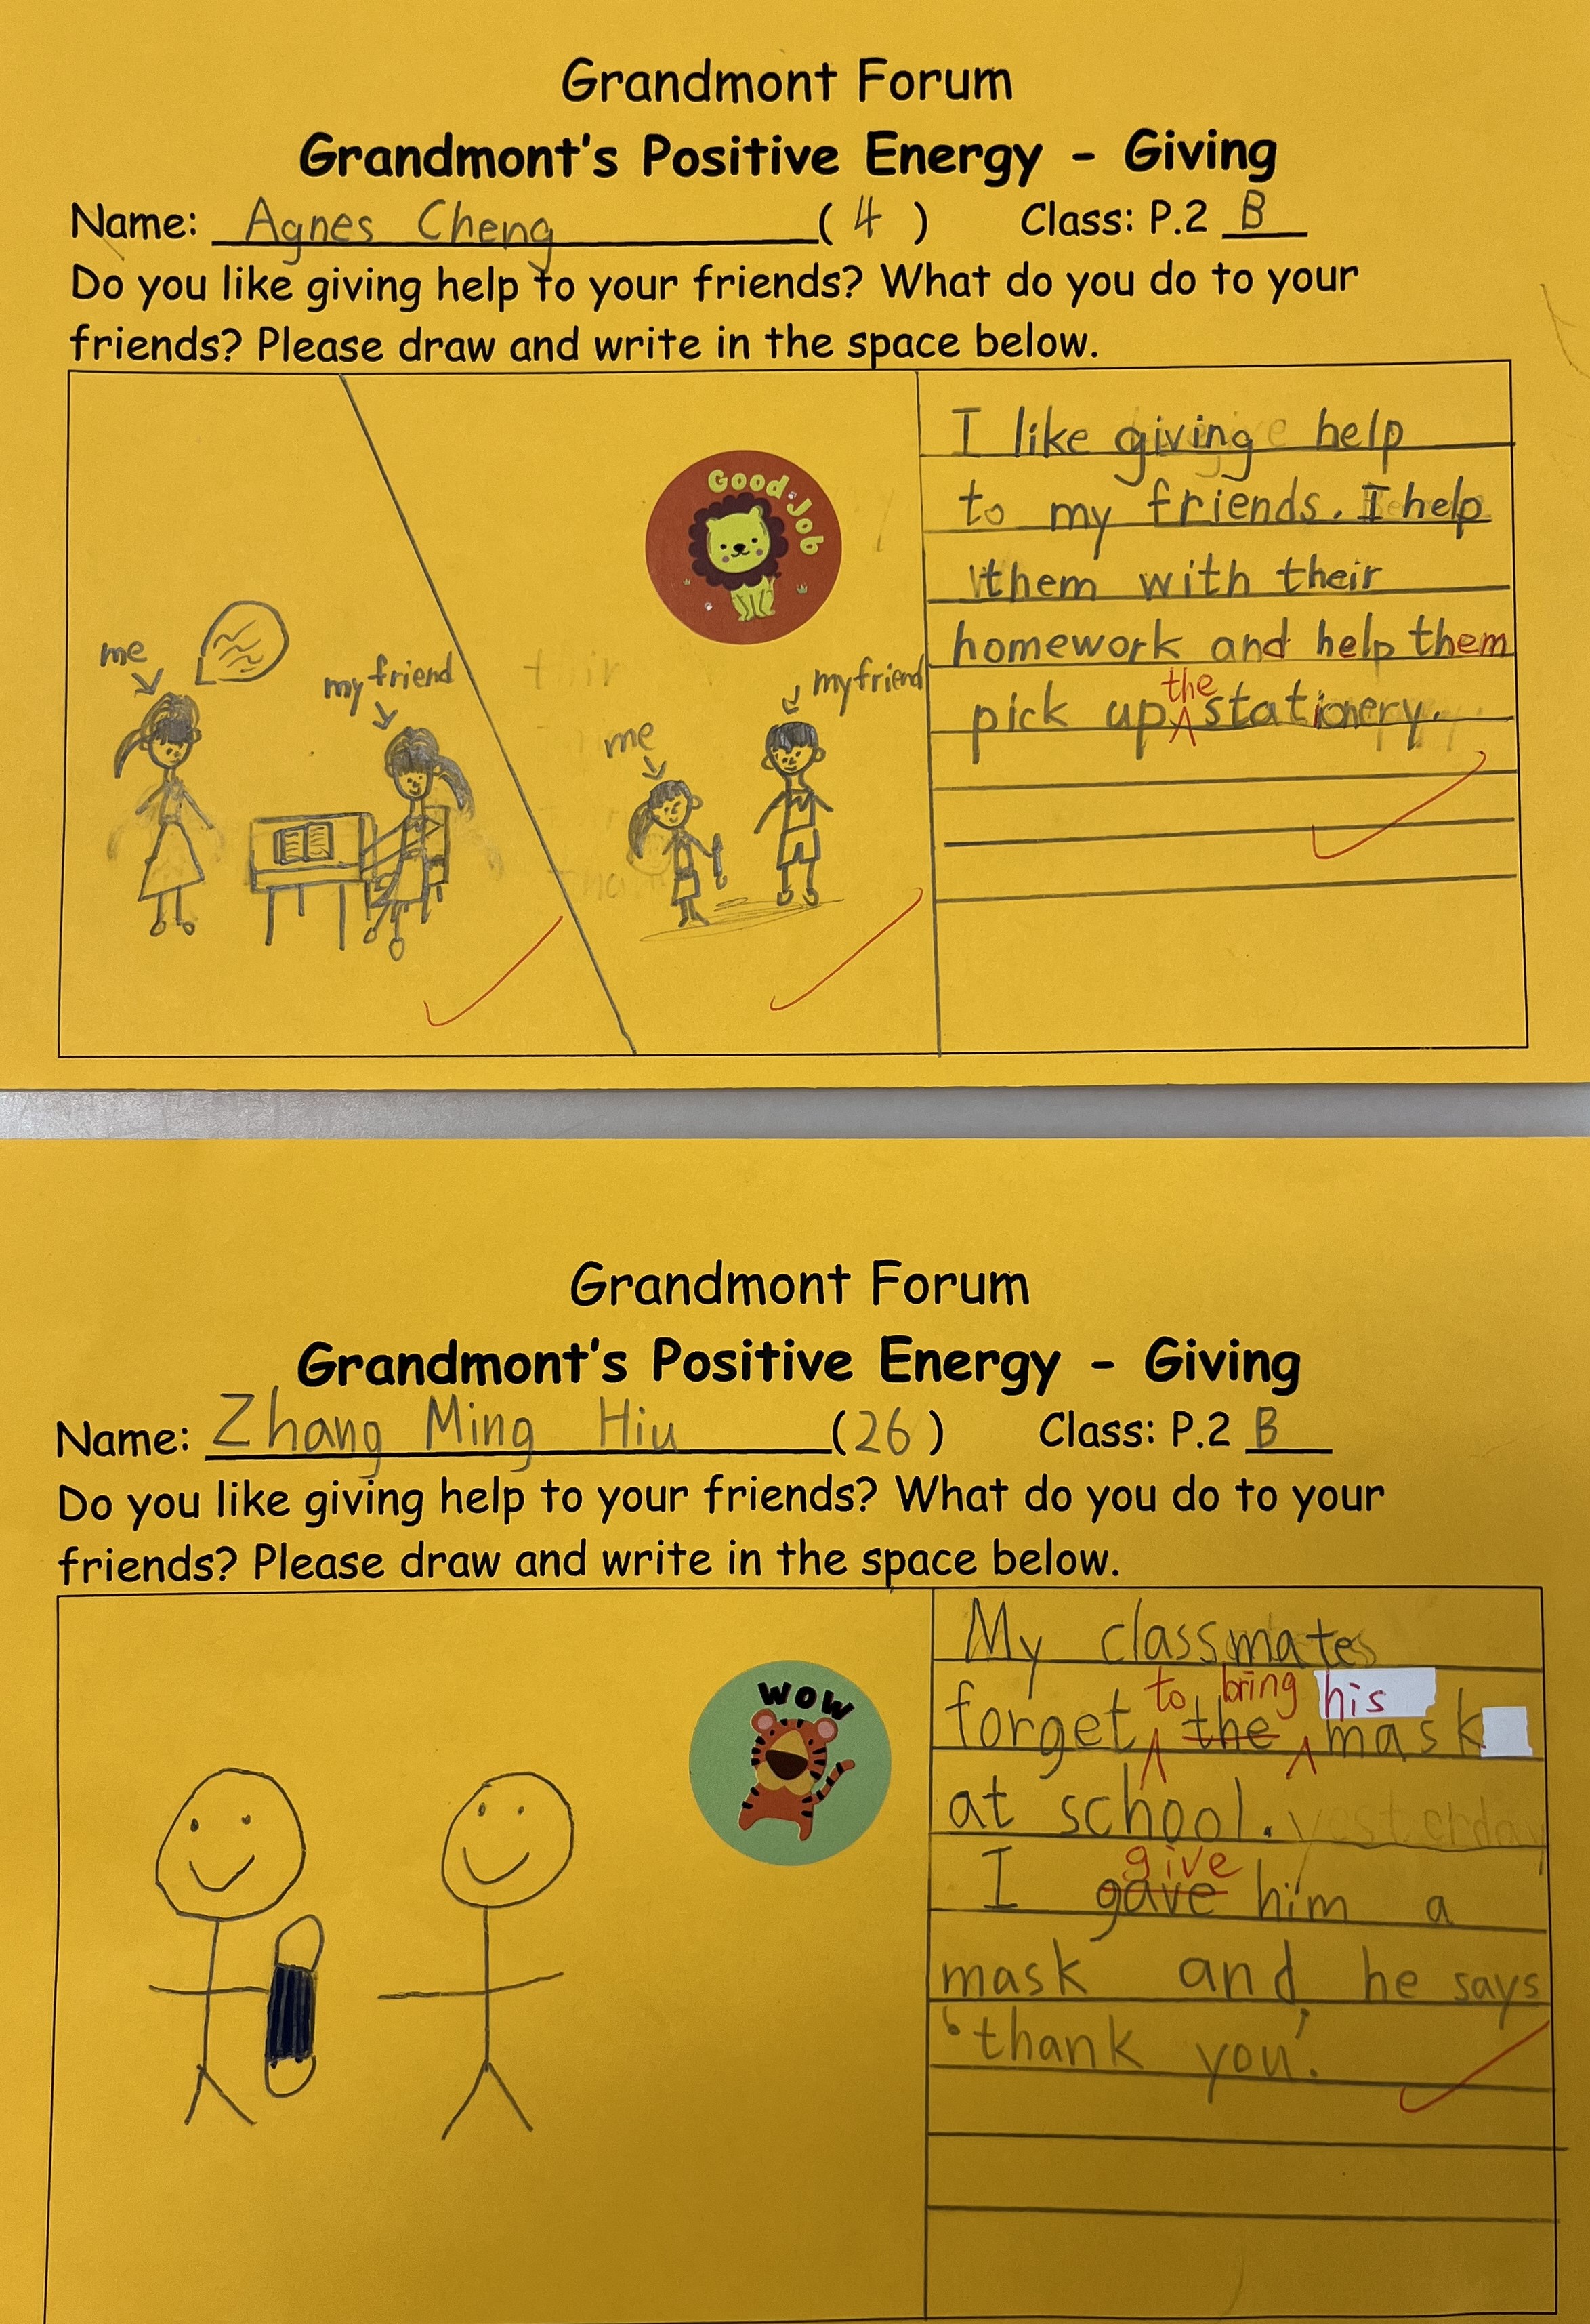 Grandmont Forum
Grandmont's Positive Energy - Giving
Name: Agnes Cheng ( 4 ) Class: P.2 B
Do you like giving help to your friends? What do you do to your
friends? Please draw and write in the space below.
Good Job
me
my friend
me
my friend
I like giving help
to my friends. I help
them with their
homework and help them
pick up the stationery.
Grandmont Forum
Grandmont's Positive Energy - Giving
Name: Zhang Ming Hiu (26) Class: P.2 B
Do you like giving help to your friends? What do you do to your
friends? Please draw and write in the space below.
WOW
My classmates
to bring his
forget the mask
at school. yesterday
give
I gave him a
mask and he says
'thank you'.